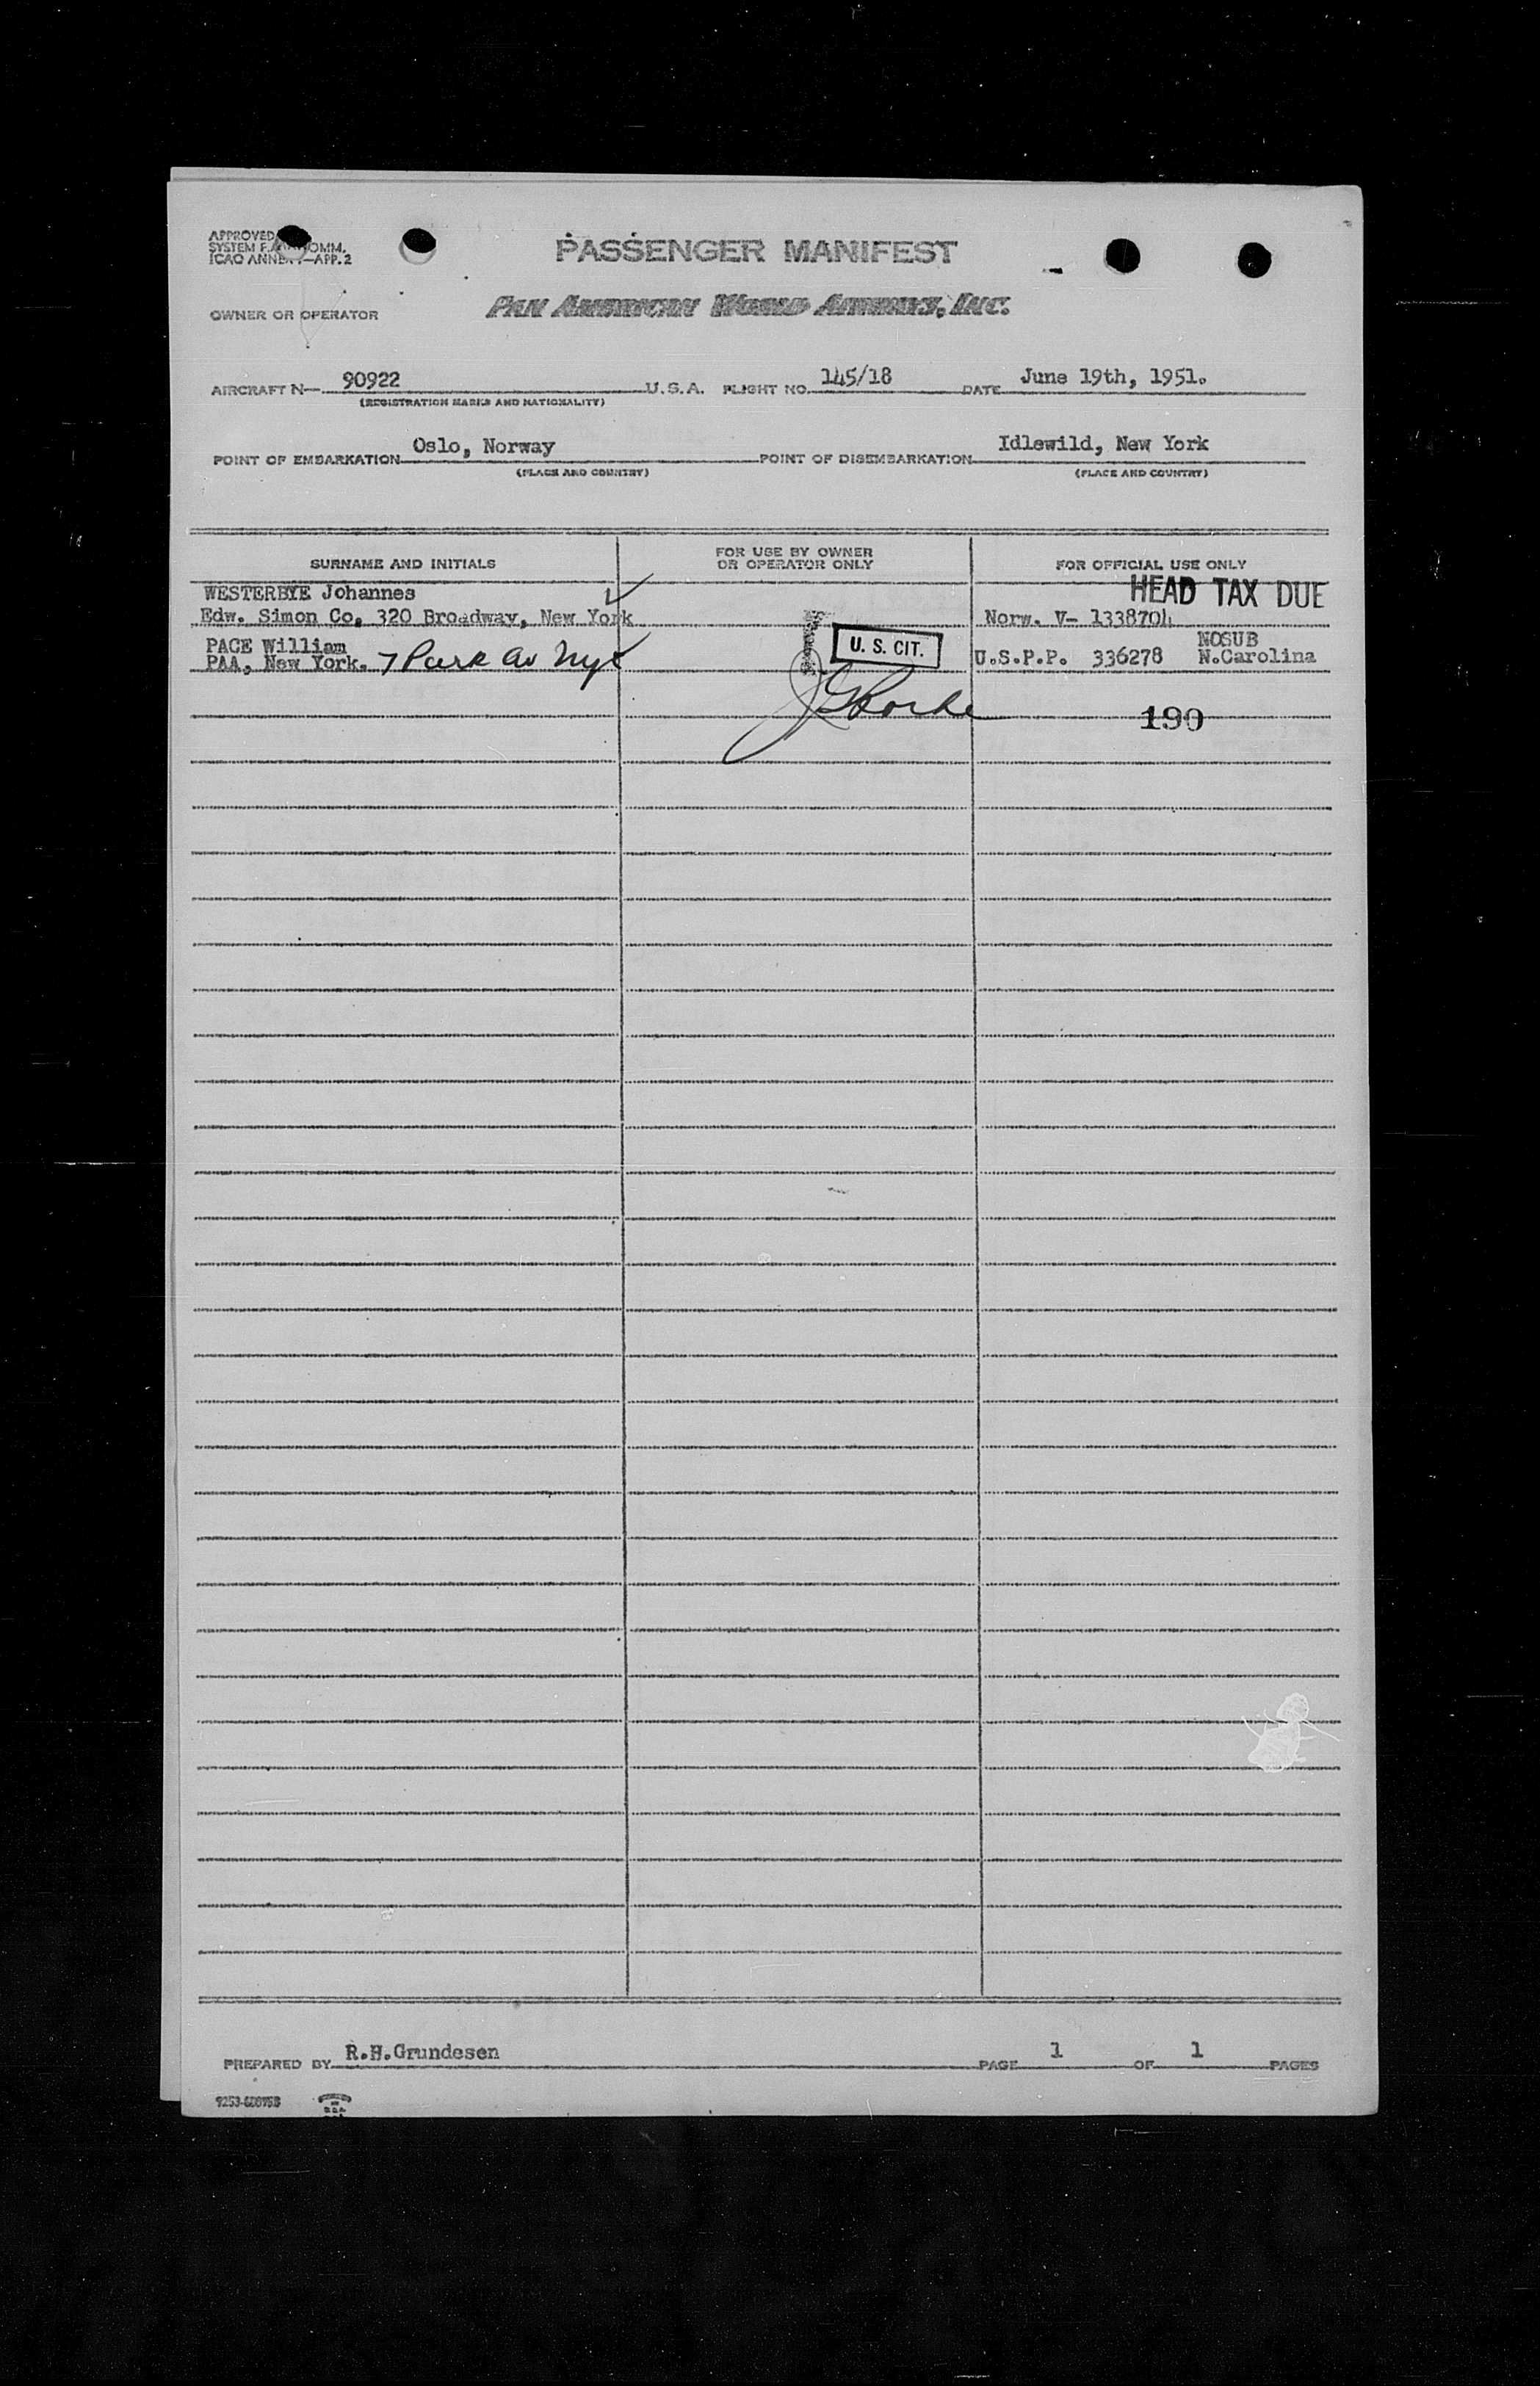 PASSENGER MANIFEST
PAN AMERICAN WORLD AIRWAYS, INC.
APPROVED
SYSTEM F. OMM.
ICAO ANNEX —APP. 2
OWNER OR OPERATOR
AIRCRAFT N— 90922 U.S.A. FLIGHT NO. 145/18 DATE June 19th, 1951.
(REGISTRATION MARKS AND NATIONALITY)
POINT OF EMBARKATION Oslo, Norway POINT OF DISEMBARKATION Idlewild, New York
(PLACE AND COUNTRY) (PLACE AND COUNTRY)
SURNAME AND INITIALS FOR USE BY OWNER OR OPERATOR ONLY FOR OFFICIAL USE ONLY
HEAD TAX DUE
WESTERBYE Johannes
Edw. Simon Co. 320 Broadway, New York Norw. V- 1338704
PAGE William U. S. CIT. NOSUB
PAA, New York. 7 Park Av NYC U.S.P.P. 336278 N.Carolina
190
PREPARED BY R.H.Grundesen PAGE 1 OF 1 PAGES